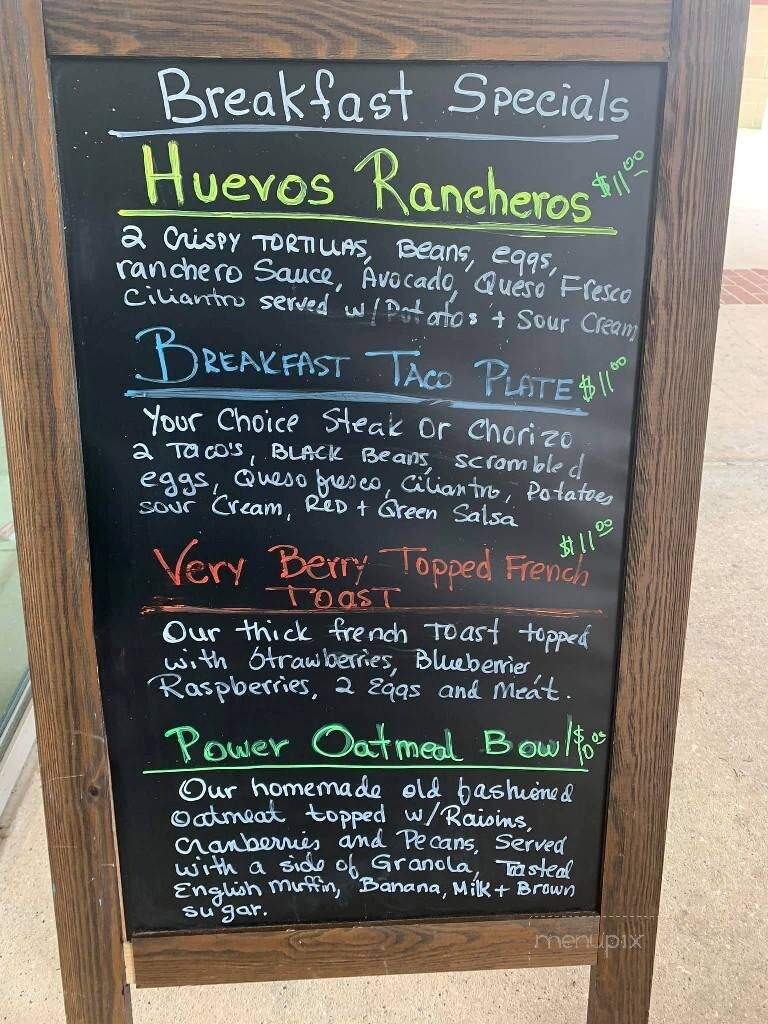 Breakfast Specials
Huevos Rancheros $11.00
2 Crispy TORTILLAS, Beans, eggs,
ranchero Sauce, Avocado, Queso Fresco
Ciliantro served w/Potatos + Sour Cream
BREAKFAST TACO PLATE $11.00
Your Choice Steak Or Chorizo
2 Taco's, BLACK Beans, scrambled
eggs, Queso fresco, Ciliantro, Potatoes
sour Cream, RED + Green Salsa
$11.00
Very Berry Topped French
TOAST
Our thick french Toast topped
with Strawberries, Blueberries,
Raspberries, 2 Eggs and Meat.
Power Oatmeal Bowl
Our homemade old fashioned
oatmeal topped w/Raisins,
Cranberries and Pecans, Served
with a side of Granola, Toasted
English Muffin, Banana, Milk + Brown
sugar.
menupix